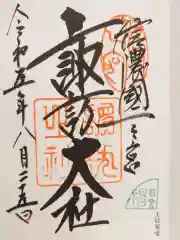 信濃國一之宮
諏訪大社
令和五年八月二五日
上社前宮